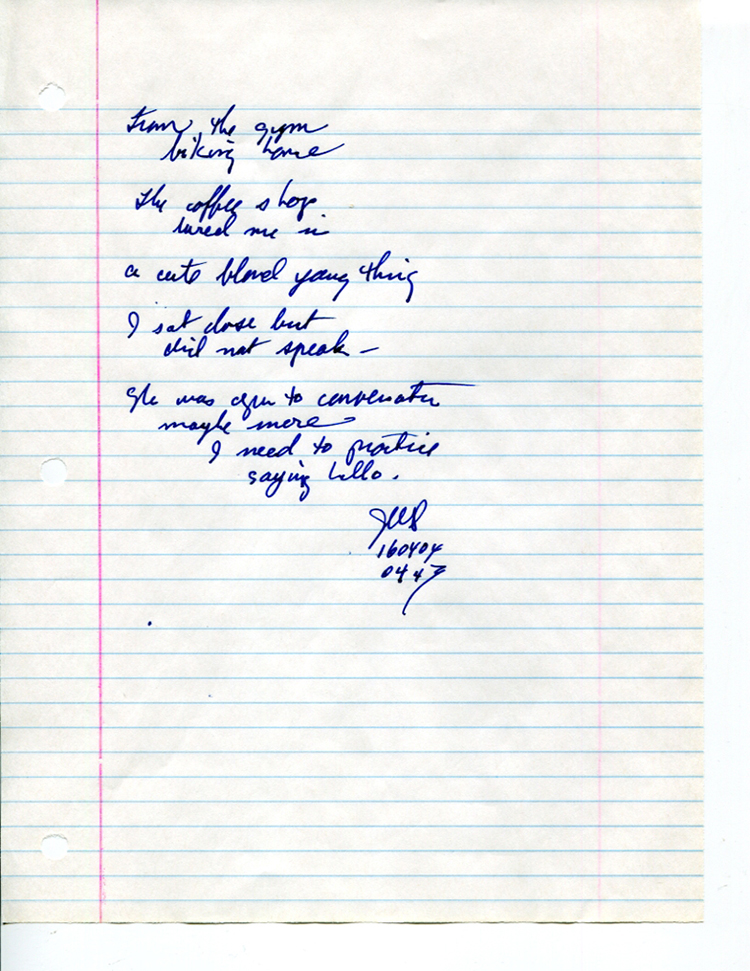 From the gym
biking home
The coffee shop
lured me in
a cute blond young thing
I sat close but
did not speak –
She was open to conversation
maybe more
I need to practice
saying hello.
160404
0447